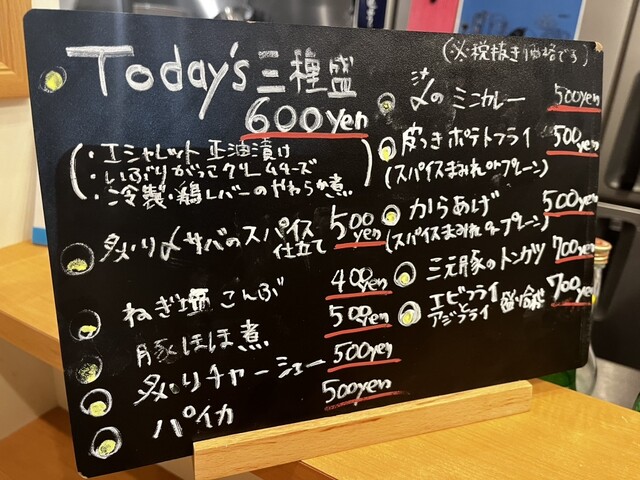 Today's 三種盛
600yen
・エシャレット 正油漬け
・いぶりがっこクリームチーズ
・冷製・鶏レバーのやわらか煮
炙り〆サバのスパイス仕立て 500yen
ねぎ塩こんぶ 400yen
豚ほほ煮 500yen
炙りチャーシュー 500yen
パイカ 500yen
(※税抜き価格です)
〆のミニカレー 500yen
皮つきポテトフライ 500yen
(スパイスまみれorプレーン)
からあげ 500yen
(スパイスまみれorプレーン)
三元豚のトンカツ 700yen
エビフライ
アジフライ 盛合せ 700yen